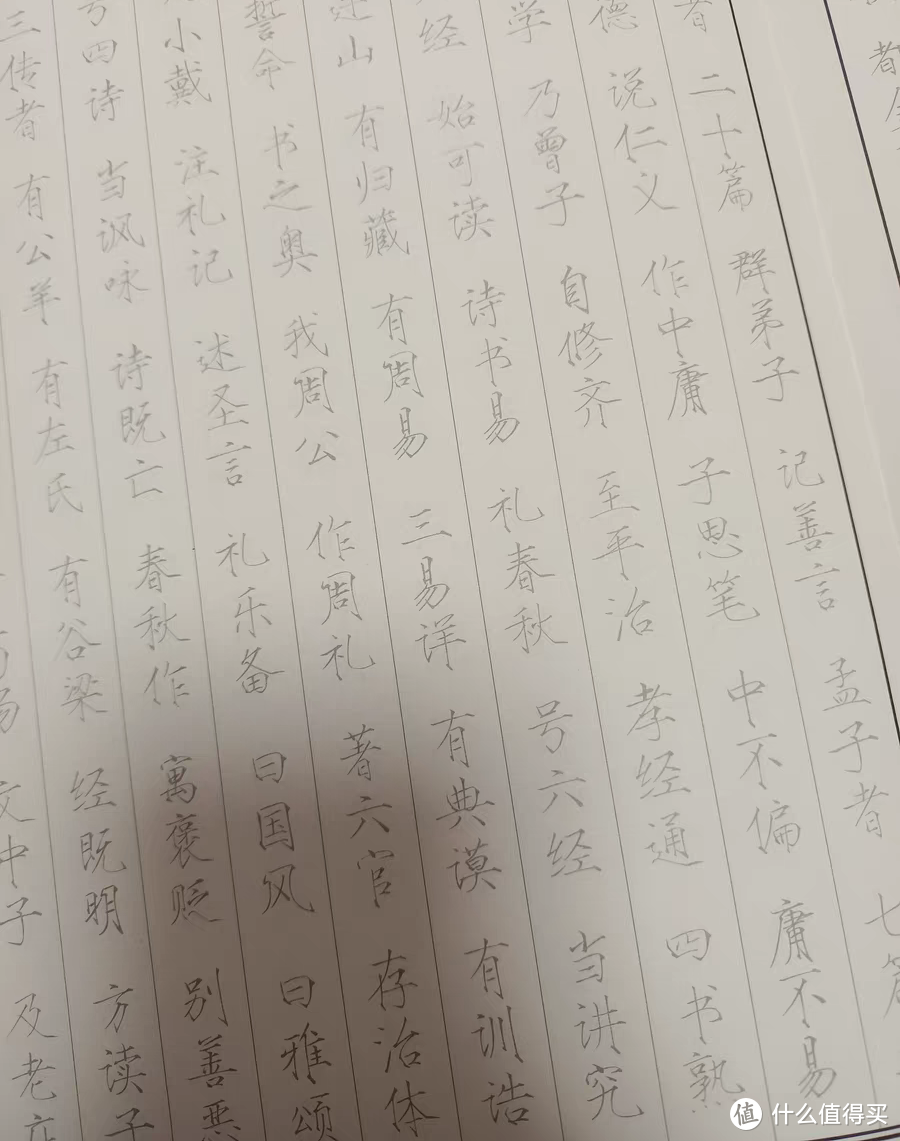 者 二十篇 群弟子 记善言 孟子者 七篇
德 说仁义 作中庸 子思笔 中不偏 庸不易
学 乃曾子 自修齐 至平治 孝经通 四书熟
经 始可读 诗书易 礼春秋 号六经 当讲究
连山 有归藏 有周易 三易详 有典谟 有训诰
誓命 书之奥 我周公 作周礼 著六官 存治体
小戴 注礼记 述圣言 礼乐备 曰国风 曰雅颂
号四诗 当讽咏 诗既亡 春秋作 寓褒贬 别善恶
三传者 有公羊 有左氏 有谷梁 经既明 方读子
文中子 及老庄
值 什么值得买